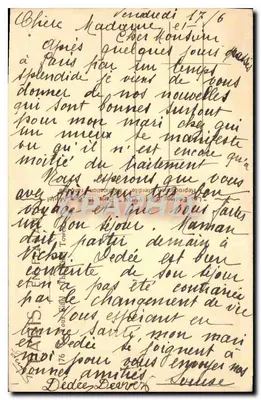 Vendredi 17/6
Chère Madame et
Cher Monsieur
Après quelques jours passés
à Paris par un temps
splendide je viens de vous
donner de nos nouvelles
qui sont bonnes surtout
pour mon mari chez qui
un mieux se manifeste
vu qu'il n'est encore qu'à
moitié du traitement.
Nous espérons que vous
avez fait un très bon
voyage et que vous faites
un bon séjour. Maman
doit partir demain à
Vichy. Dédée est bien
contente de son séjour
et n'a pas été
par le changement de vie
Vous espérant en
bonne santé, mon mari
et Dédée se joignent à
moi pour vous envoyer nos
bonnes amitiés.
Dédée